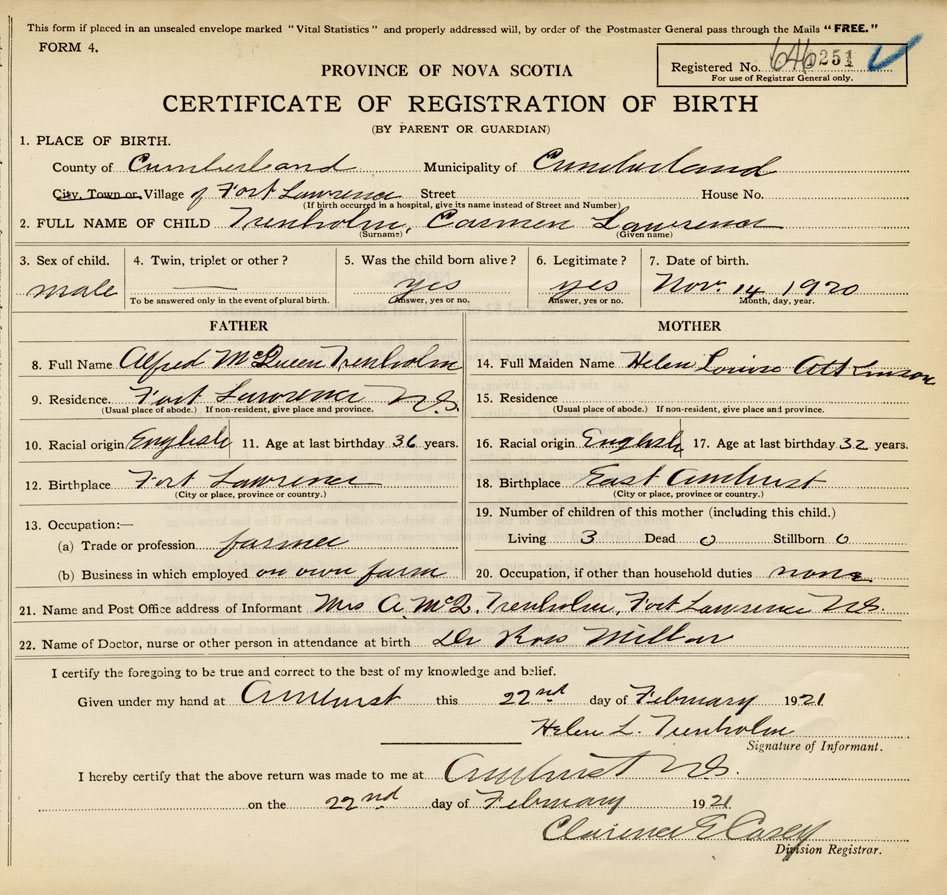 This form if placed in an unsealed envelope marked "Vital Statistics" and properly addressed will, by order of the Postmaster General pass through the Mails "FREE."
FORM 4.
Registered No. 251
For use of Registrar General only.
PROVINCE OF NOVA SCOTIA
CERTIFICATE OF REGISTRATION OF BIRTH
(BY PARENT OR GUARDIAN)
1. PLACE OF BIRTH.
County of Cumberland Municipality of Cumberland
City, Town or Village of Fort Lawrence Street House No.
(If birth occurred in a hospital, give its name instead of Street and Number)
2. FULL NAME OF CHILD Trenholm, Carmen Lawrence
(Surname) (Given name)
3. Sex of child. 4. Twin, triplet or other? 5. Was the child born alive? 6. Legitimate? 7. Date of birth.
male — yes yes Nov. 14 1920
To be answered only in the event of plural birth. Answer, yes or no. Answer, yes or no. Month, day, year.
FATHER MOTHER
8. Full Name Alfred McQueen Trenholm 14. Full Maiden Name Helen Louise Atkinson
9. Residence. Fort Lawrence N.S. 15. Residence
(Usual place of abode.) If non-resident, give place and province. (Usual place of abode.) If non-resident, give place and province.
10. Racial origin English 11. Age at last birthday 36 years. 16. Racial origin English 17. Age at last birthday 32 years.
12. Birthplace Fort Lawrence 18. Birthplace East Amherst
(City or place, province or country.) (City or place, province or country.)
13. Occupation:— 19. Number of children of this mother (including this child.)
(a) Trade or profession farmer Living 3 Dead 0 Stillborn 0
(b) Business in which employed on own farm 20. Occupation, if other than household duties none
21. Name and Post Office address of Informant Mrs A. McQ. Trenholm, Fort Lawrence N.S.
22. Name of Doctor, nurse or other person in attendance at birth Dr Ross Millar
I certify the foregoing to be true and correct to the best of my knowledge and belief.
Given under my hand at Amherst this 22nd day of February 1921
Helen L. Trenholm
Signature of Informant.
I hereby certify that the above return was made to me at Amherst N.S.
on the 22nd day of February 1921
Clarence E Casey
Division Registrar.